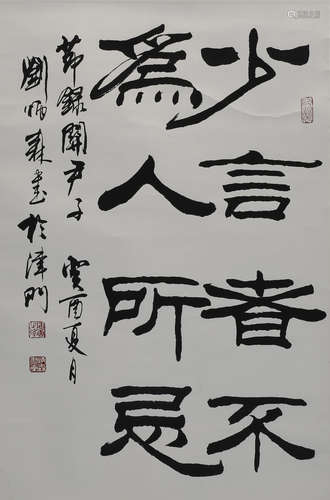 少言者不
為人所忌
節錄關尹子 癸酉夏月
劉炳森書於津門